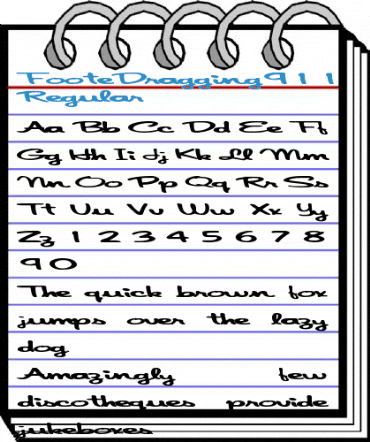 FooteDragging911
Regular
Aa Bb Cc Dd Ee Ff
Gg Hh Ii Jj Kk Ll Mm
Nn Oo Pp Qq Rr Ss
Tt Uu Vv Ww Xx Yy
Zz 1 2 3 4 5 6 7 8
9 0
The quick brown fox
jumps over the lazy
dog
Amazingly few
discotheques provide
jukeboxes